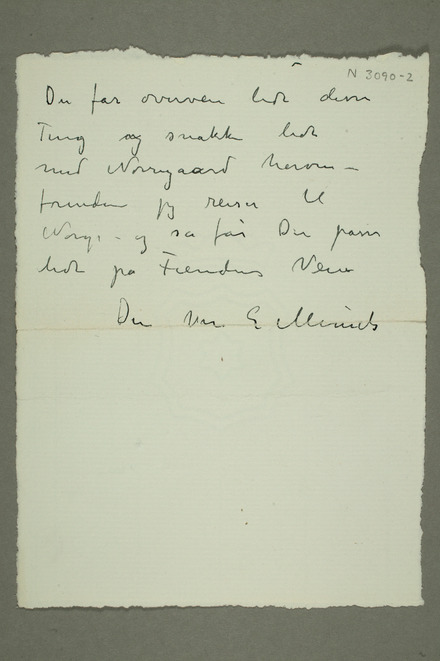 N 3090-2
Du får overveie lidt disse
Ting og snakke lidt
med Nørregaard herom –
forinden jeg reiser til
Norge – og så får Du passe
lidt på Fiendens Venner
Din Ven E Munch